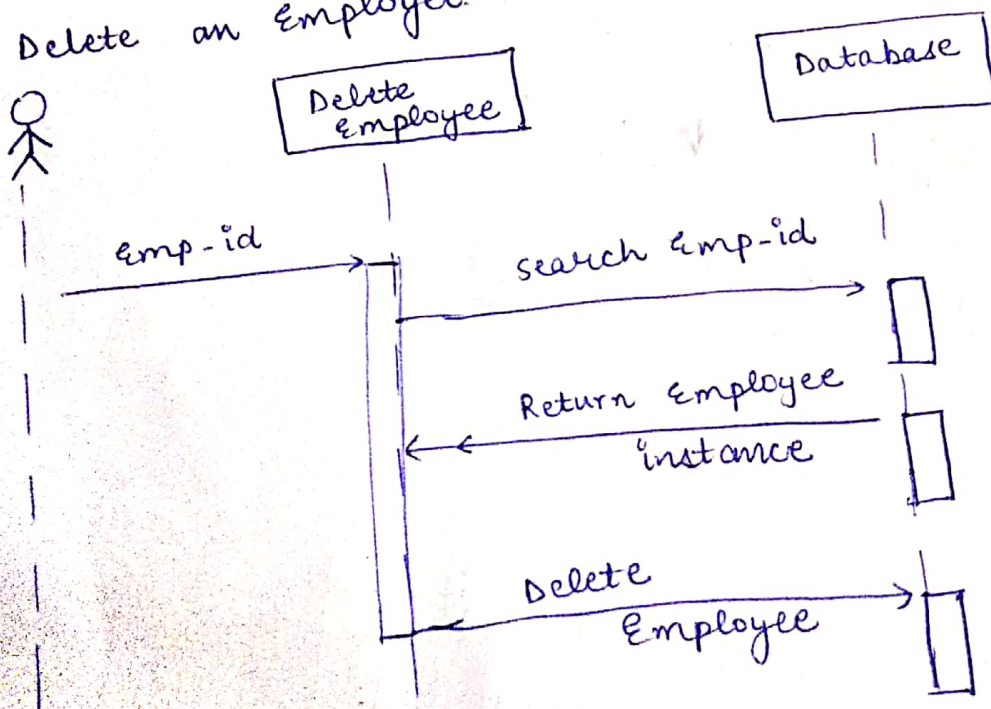 Delete an Employee.
Delete
Employee
Database
Emp-id
search Emp-id
Return Employee
instance
Delete
Employee